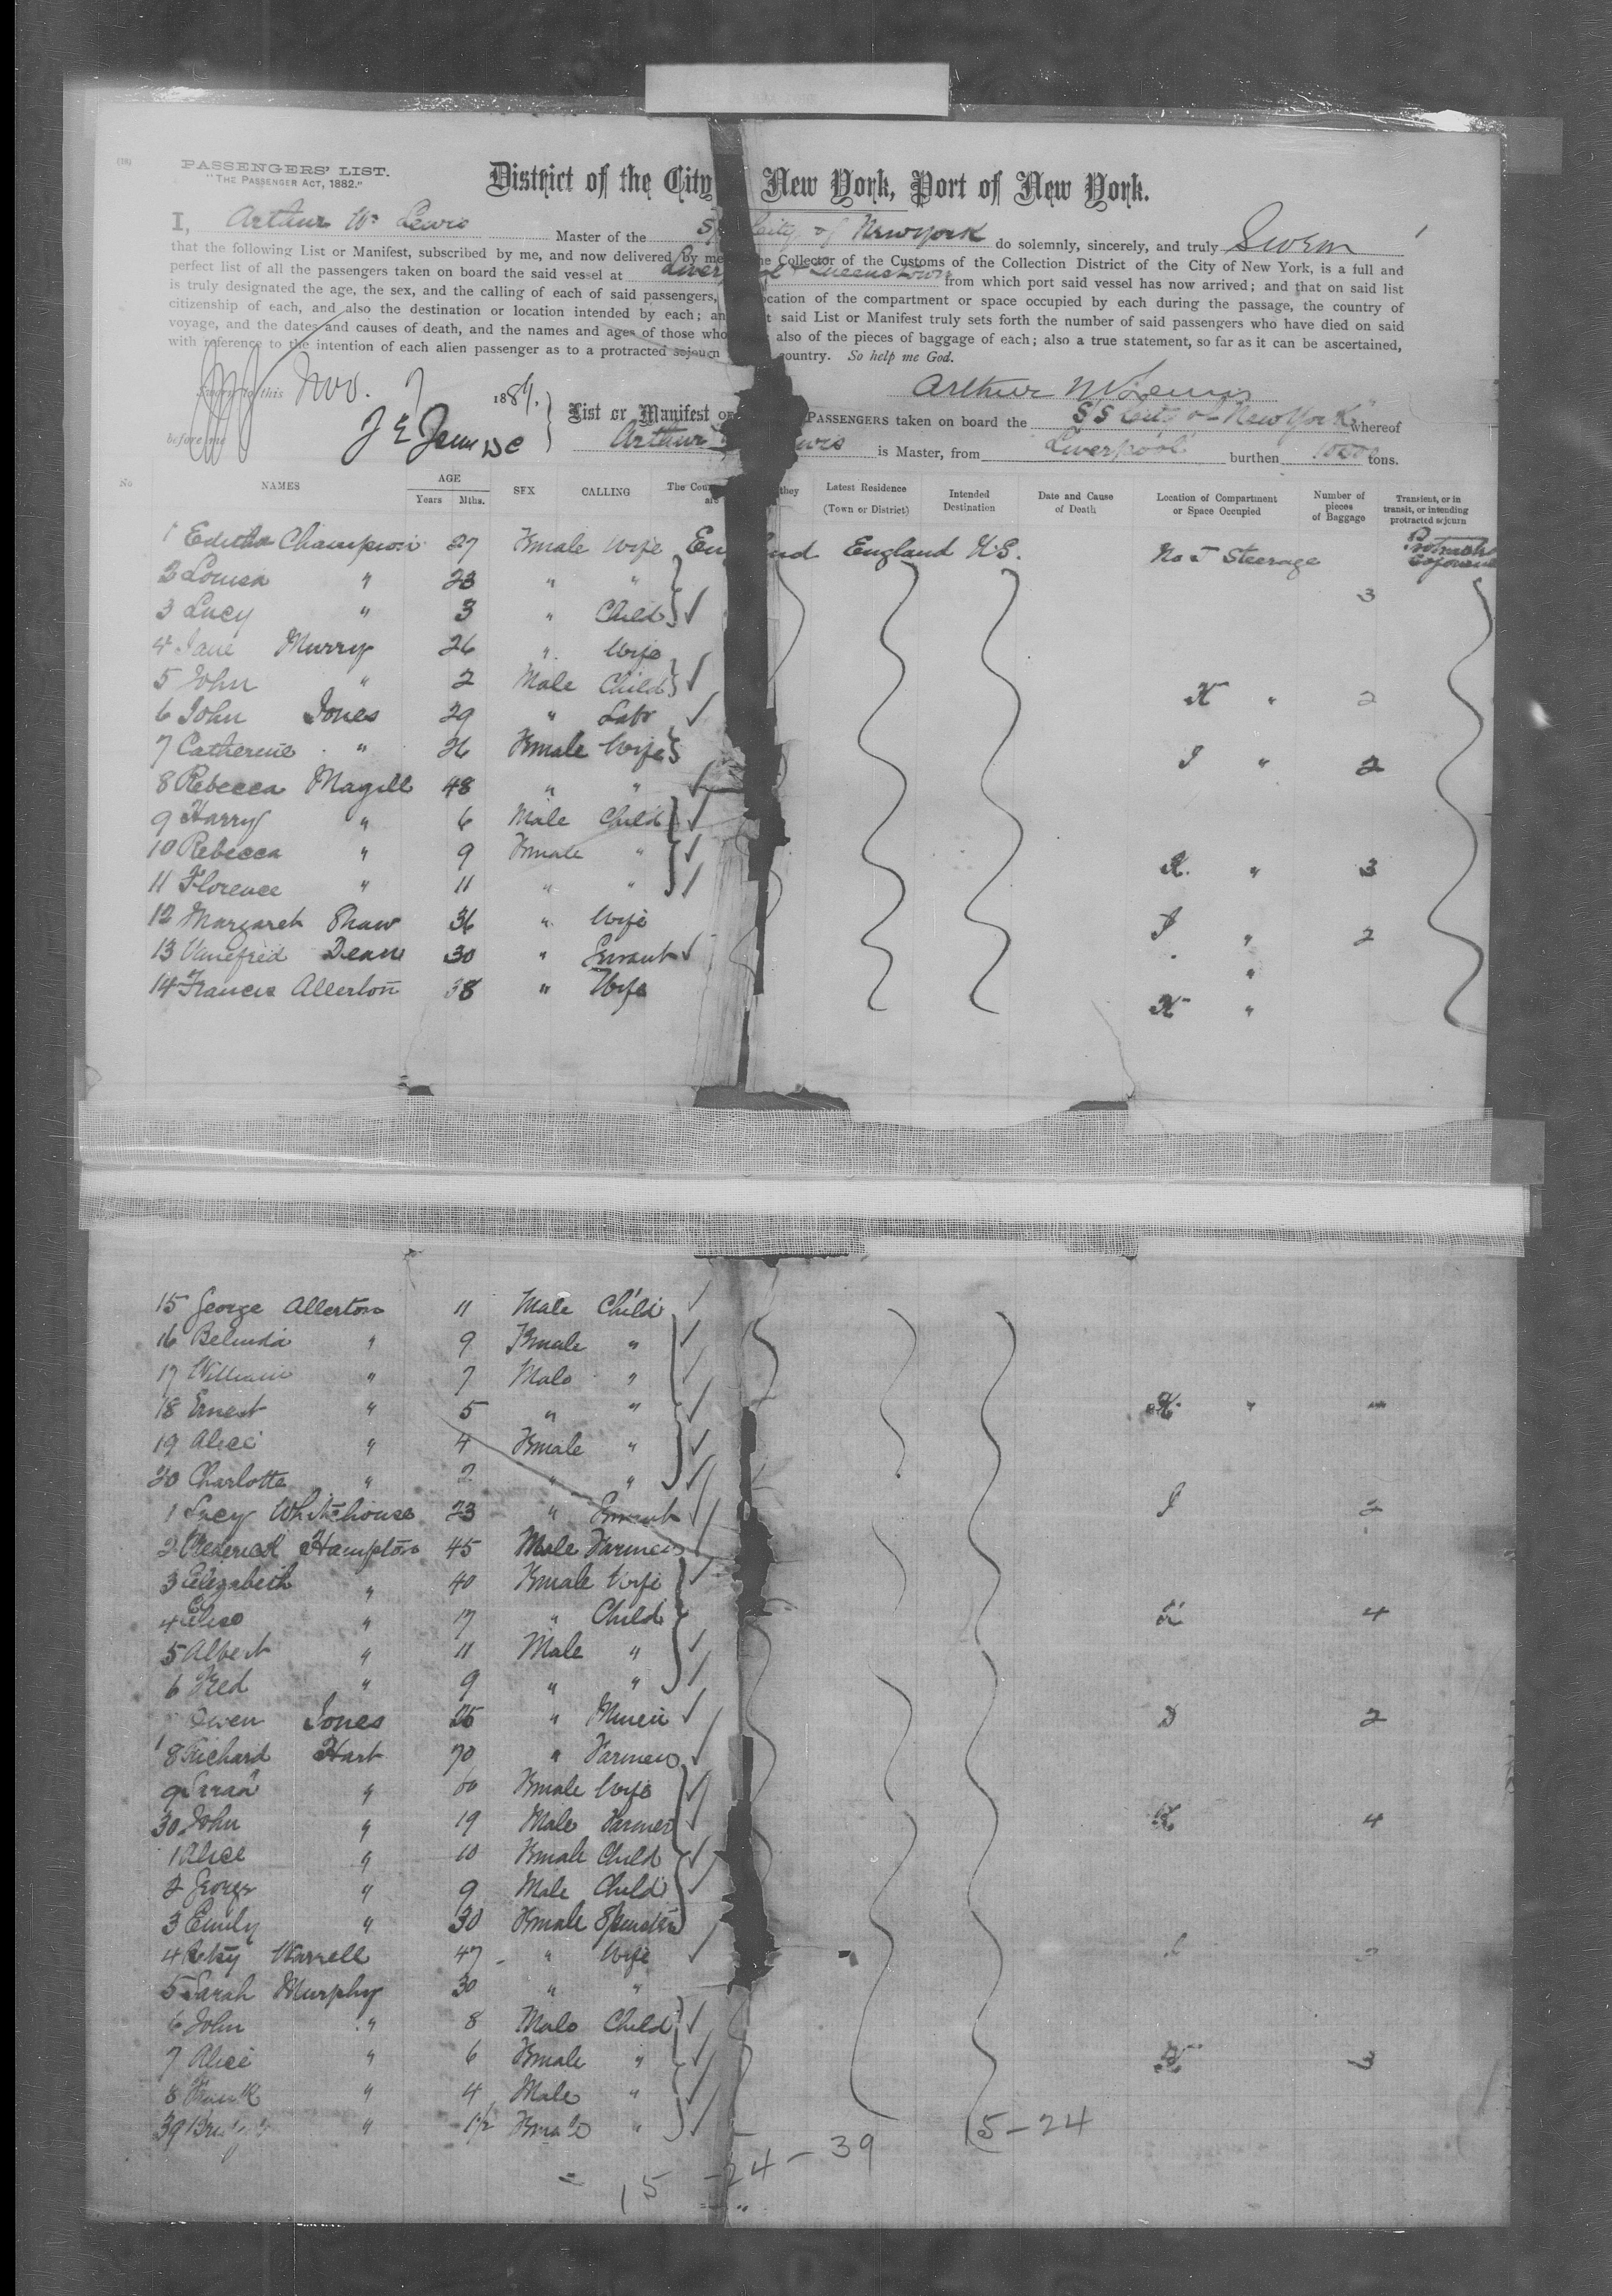 (18)
PASSENGERS' LIST.
"THE PASSENGER ACT, 1882."
District of the City New York, Port of New York.
I, Arthur W. Lewis Master of the SS City of New York do solemnly, sincerely, and truly Swear
that the following List or Manifest, subscribed by me, and now delivered by me he Collector of the Customs of the Collection District of the City of New York, is a full and
perfect list of all the passengers taken on board the said vessel at Liverpool & Queenstown from which port said vessel has now arrived; and that on said list
is truly designated the age, the sex, and the calling of each of said passengers, ocation of the compartment or space occupied by each during the passage, the country of
citizenship of each, and also the destination or location intended by each; an t said List or Manifest truly sets forth the number of said passengers who have died on said
voyage, and the dates and causes of death, and the names and ages of those who also of the pieces of baggage of each; also a true statement, so far as it can be ascertained,
with reference to the intention of each alien passenger as to a protracted sojourn country. So help me God.
Sworn to this Nov. 7 188
Arthur W Lewis
before me
List or Manifest o PASSENGERS taken on board the SS City of New York whereof
Arthur Lewis is Master, from Liverpool burthen tons.
No NAMES AGE Years Mths. SEX CALLING The Cou are they Latest Residence (Town or District) Intended Destination Date and Cause of Death Location of Compartment or Space Occupied Number of pieces of Baggage Transient, or in transit, or intending protracted sojourn
1 Editha Champion 27 Female Wife England England U.S. No 5 Steerage Protracted Sojourn
2 Louisa " 23 " " 3
3 Lucy " 3 " Child
4 Jane Murry 26 " Wife
5 John " 2 Male Child K " 2
6 John Jones 29 " Labr
7 Catherine " 26 Female Wife J " 2
8 Rebecca Magill 48 " "
9 Harry " 6 Male Child
10 Rebecca " 9 Female " K. " 3
11 Florence " 11 " "
12 Margaret Shaw 36 " Wife J " 2
13 Winefred Deane 30 " Servant "
14 Francis Allerton 38 " Wife K "
15 George Allerton 11 Male Child
16 Belinda " 9 Female "
17 William " 7 Male "
18 Ernest " 5 " " K " "
19 Alice " 4 Female "
20 Charlotte " 2 " "
1 Lucy Whitehouse 23 " Servant J 2
2 Frederick Hampton 45 Male Farmer
3 Elizabeth " 40 Female Wife
4 " 17 " Child K 4
5 Albert " 11 Male "
6 Fred " 9 " "
Owen Jones 25 " Miner 2
8 Richard Hart 70 " Farmer
9 Sarah " 60 Female Wife
30 John " 19 Male Farmer K 4
1 Alice " 10 Female Child
2 " 9 Male Child
3 Emily " 30 Female Spinster
4 Worrell 47 " Wife
5 Sarah Murphy 30 " "
6 John " 8 Male Child
7 Alice " 6 Female " K 3
8 Frank " 4 Male "
39 " 1/2 Female "
15-24
= 15 - 24 - 39